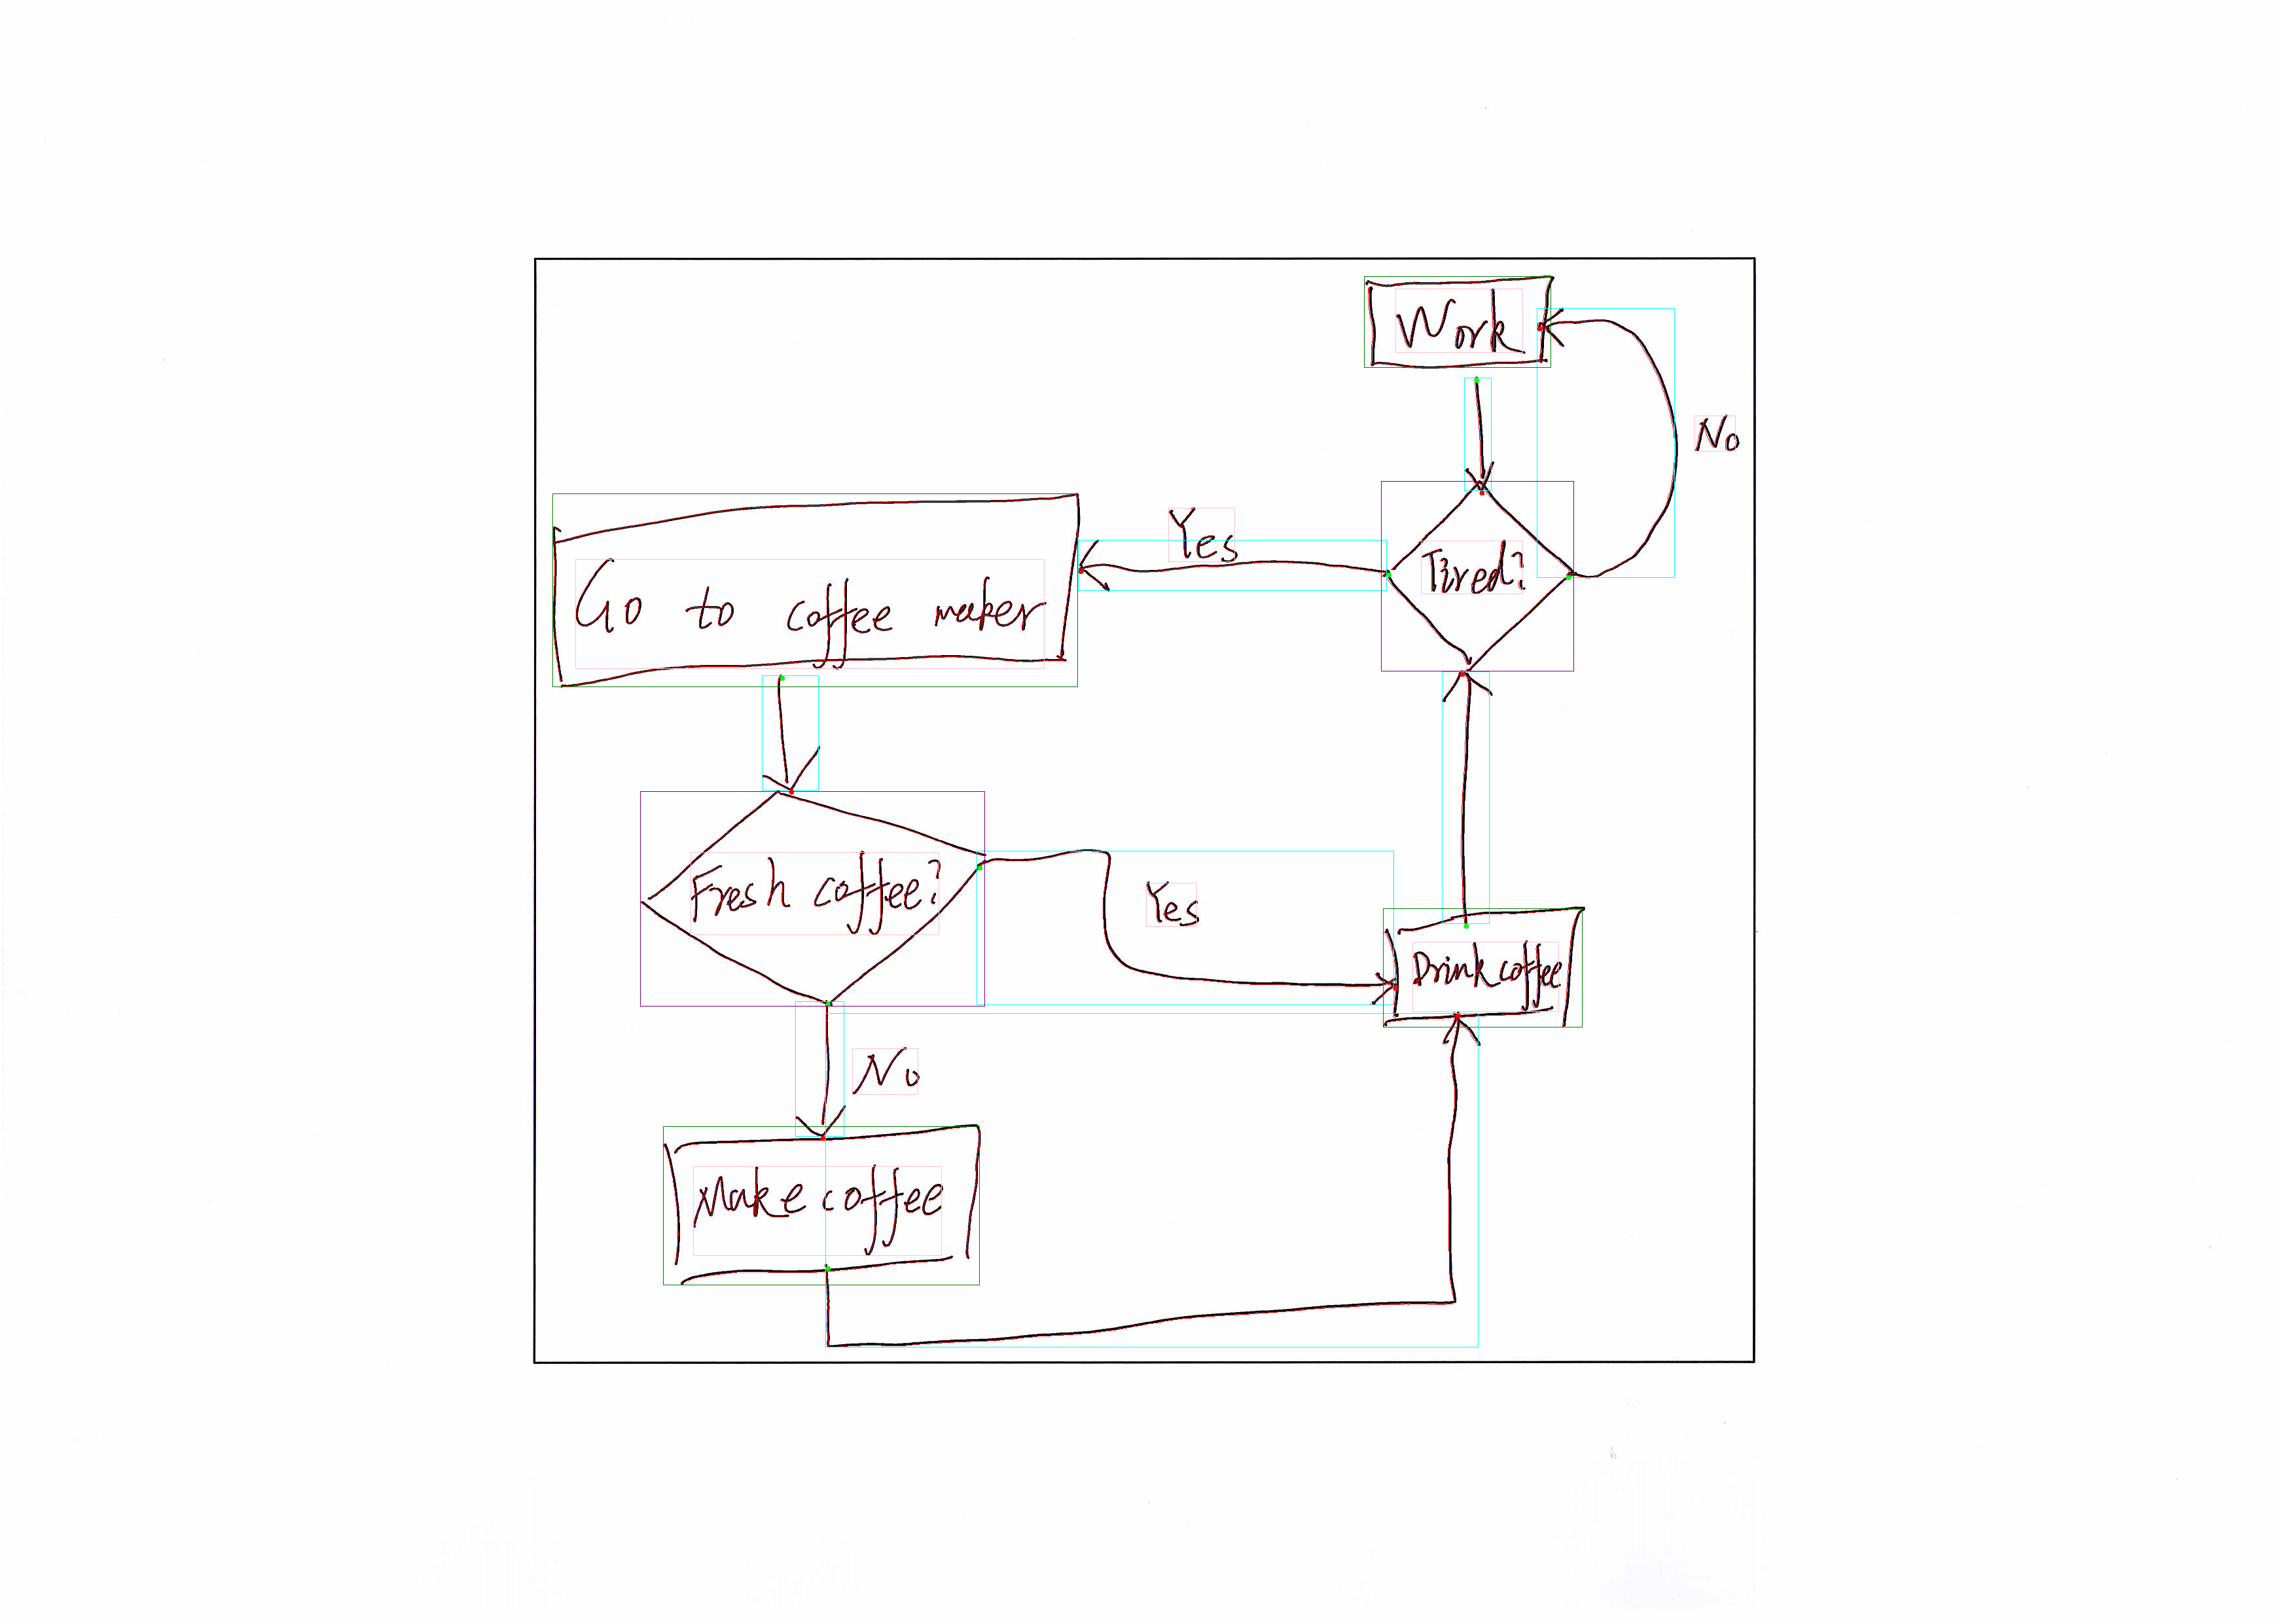 Work
No
Yes
Tired?
Go to coffee maker
Fresh coffee?
Yes
Drink coffee
No
Make coffee